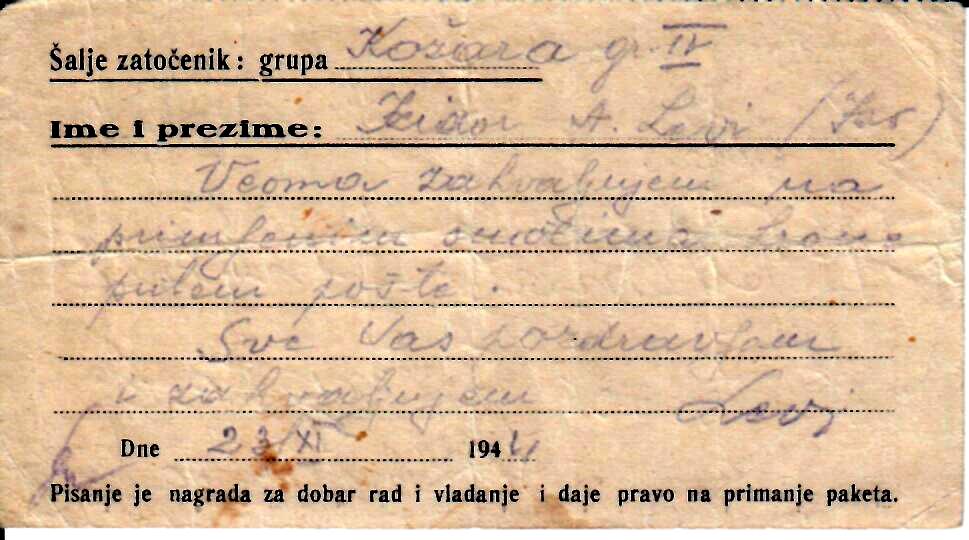 Šalje zatočenik: grupa Kožara gr. IV
Ime i prezime: Izidor A. Levi
Veoma zahvaljujem na
primljenim
putem pošte.
Sve Vas pozdravljam
i zahvaljujem Levi
Dne 23/XI 1944
Pisanje je nagrada za dobar rad i vladanje i daje pravo na primanje paketa.